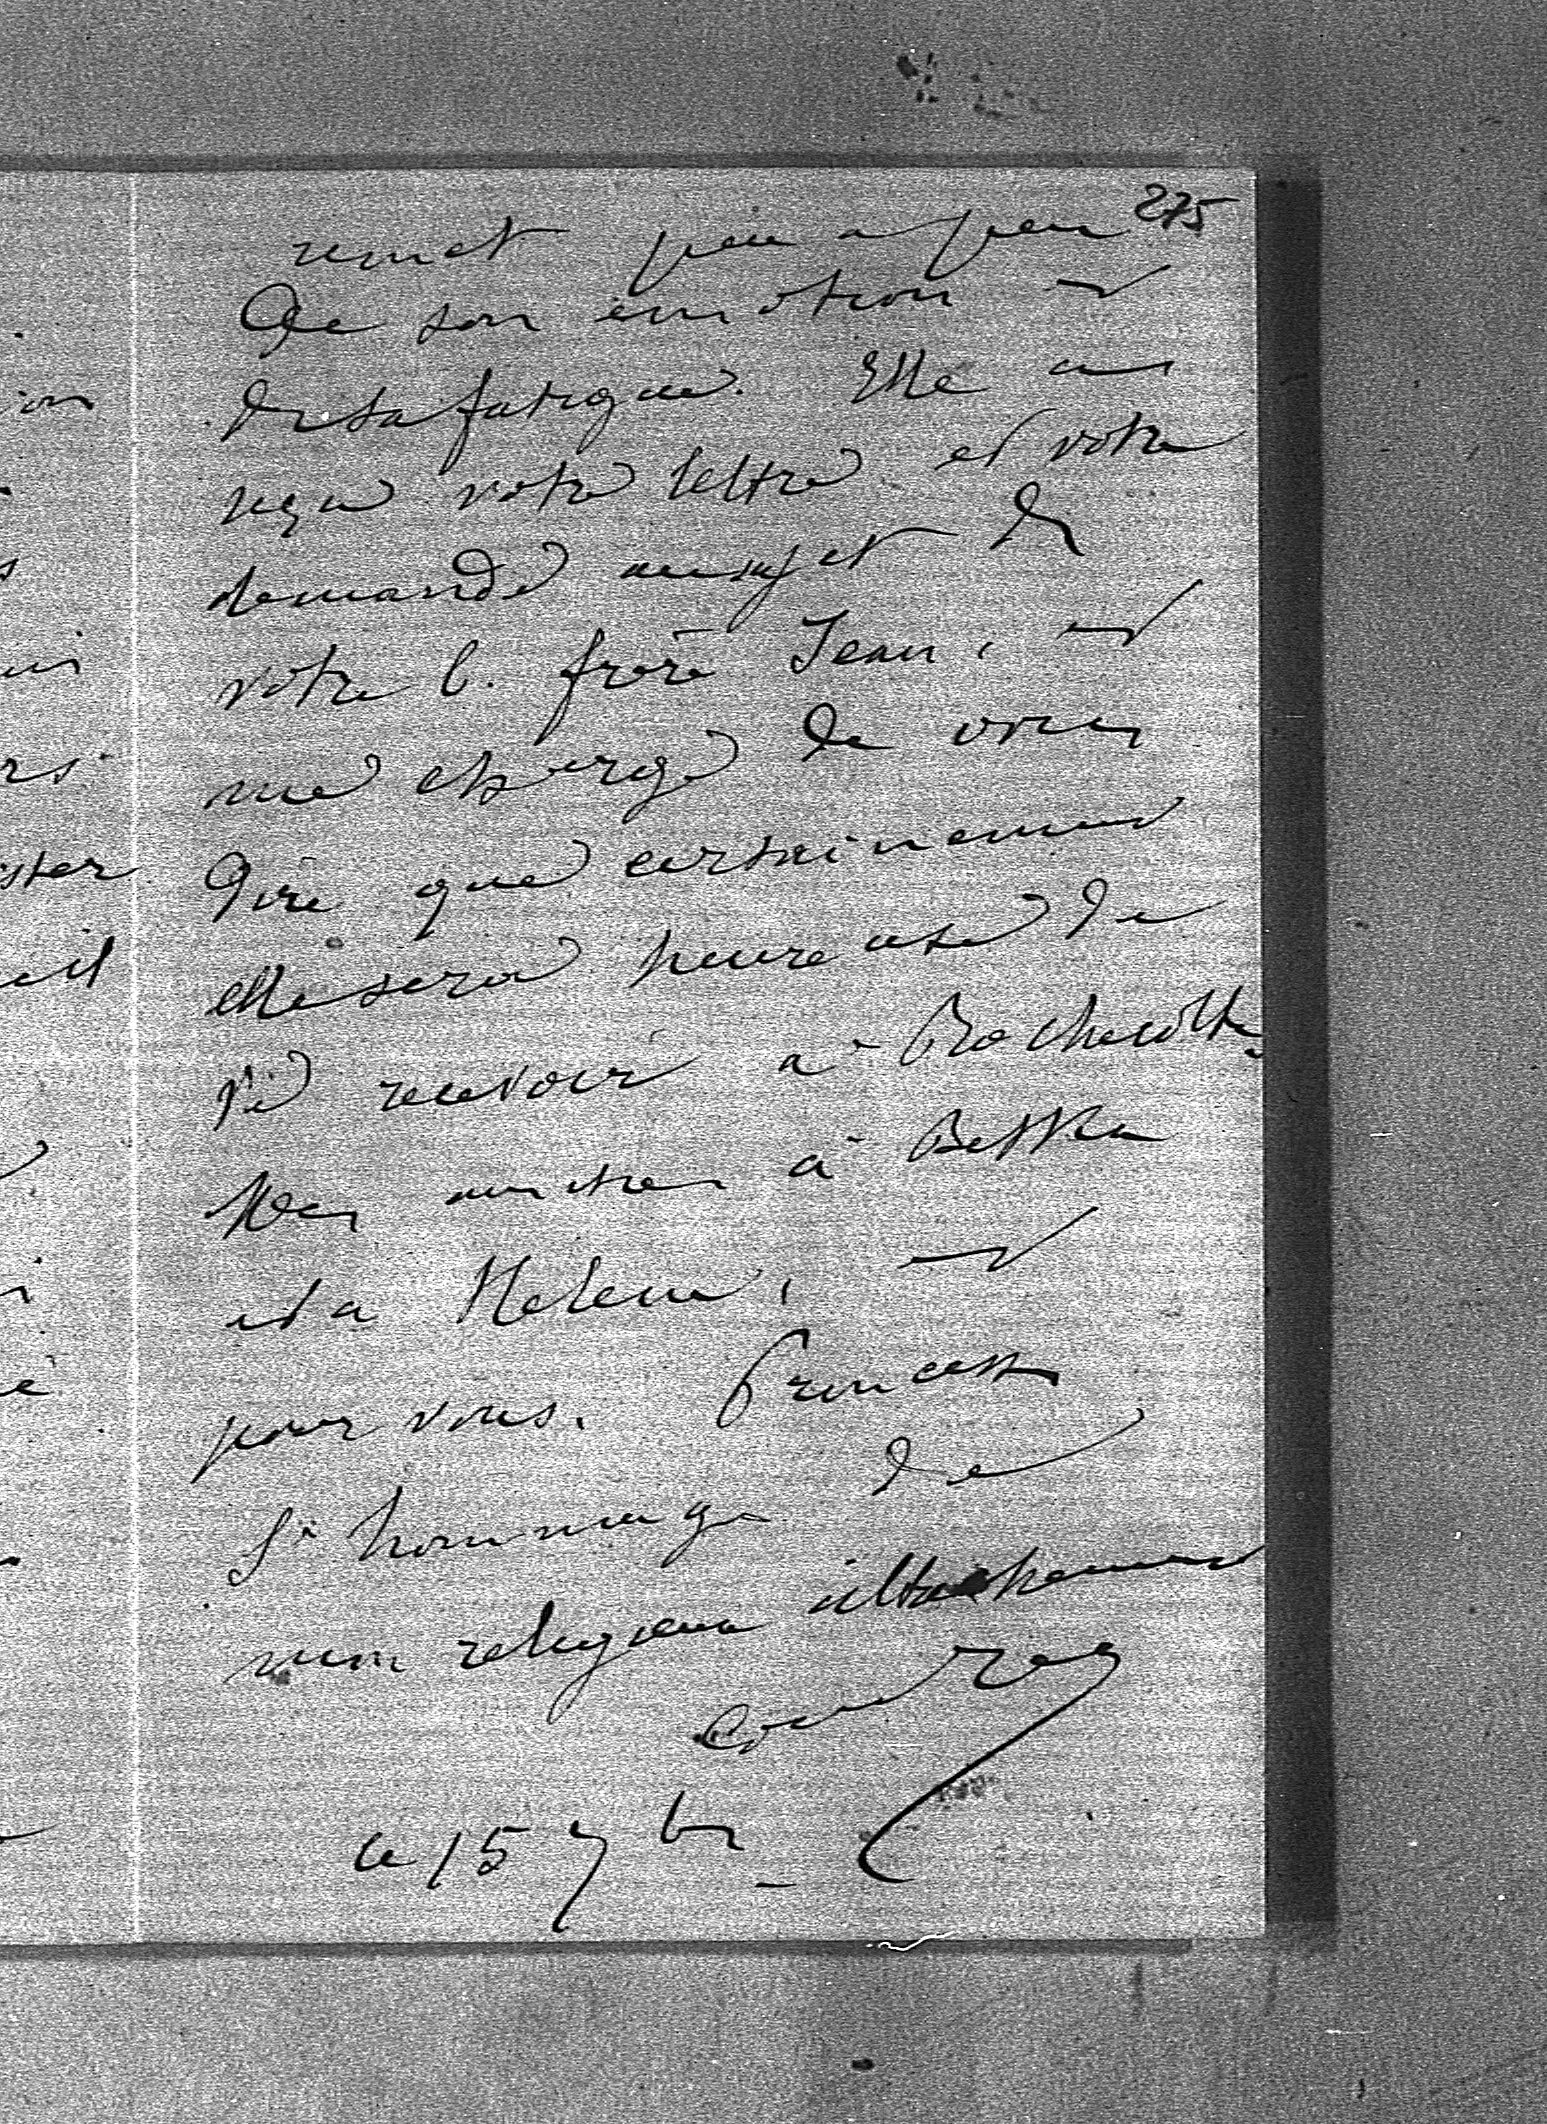 275
remet peu a peu
De son émotion et
de sa fatigue. Elle a
reçu votre lettre et votre
demande au sujet de
votre b. frère Jean, et
me charge de vous
Dire que certainement
elle sera heureuse de
le recevoir a Rochecotte
à Betka
et a Helene, et
pour vous. Princesse
l'hommage de
mon religieux attachement
le 15 7br
ion
s
rs
ster